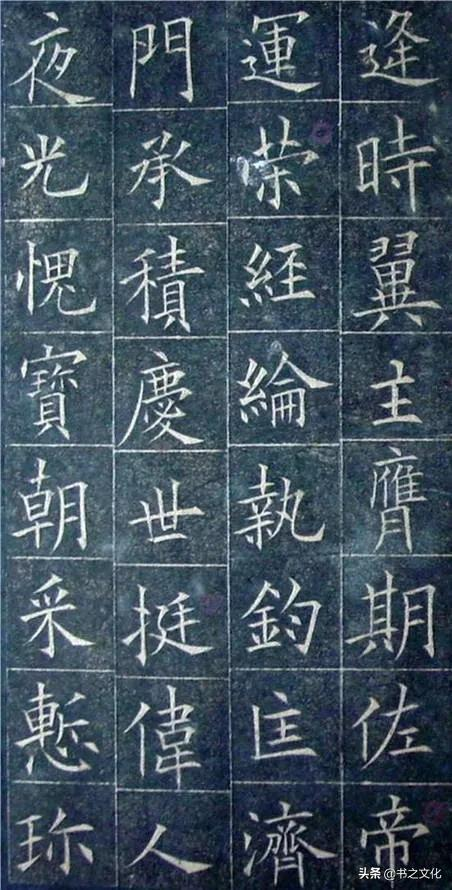 逢時翼主膺期佐帝
運榮經綸執鈞匡濟
門承積慶世挺偉人
夜光愧寶朝采慙珎
头条 @书之文化